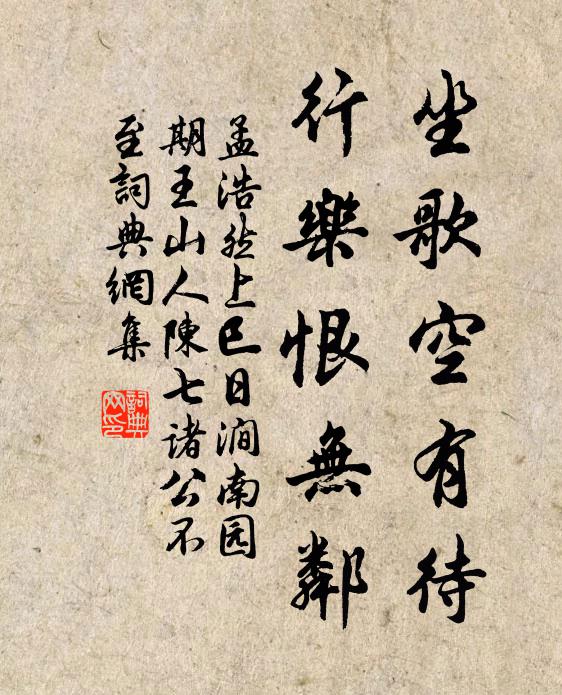 坐歌空有待
行樂恨無鄰
孟浩然上巳日澗南园
期王山人陳七诸公不
至詞典網集
詞典
网印